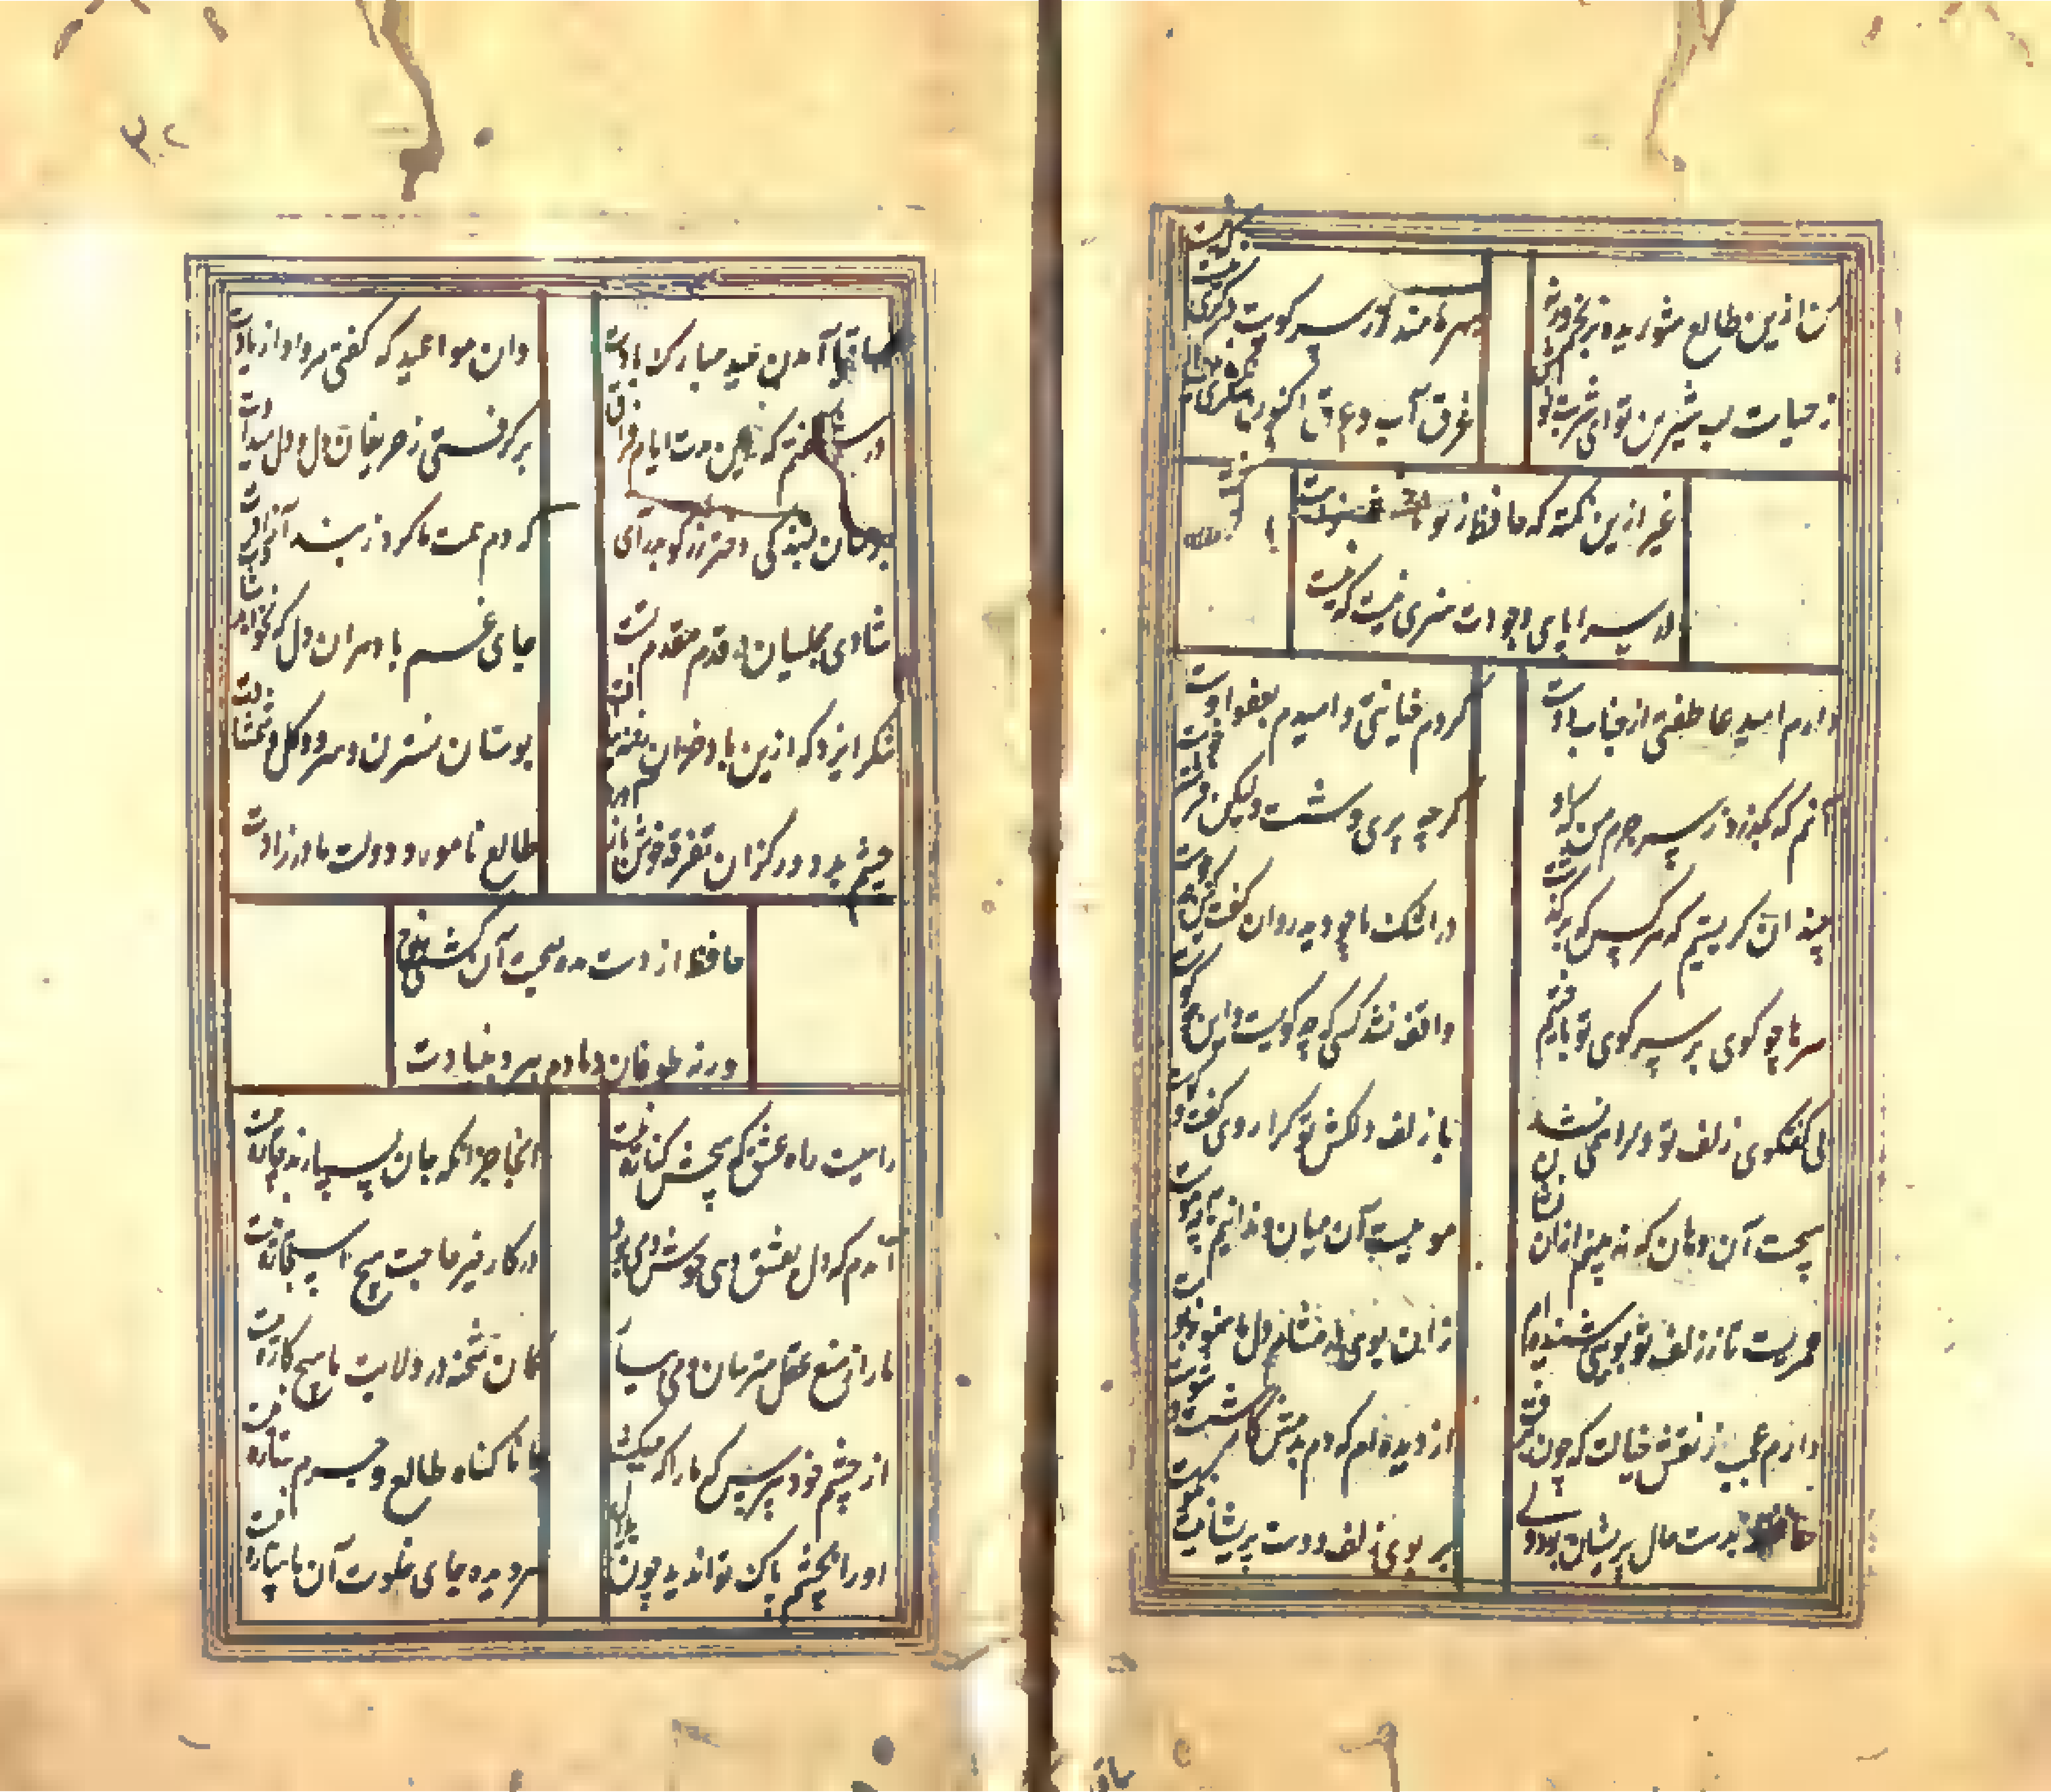 من ازین طالع شوریده برنجم ورنه
بهره‌مند از سر کویت دگری نیست که نیست
از حیات لب شیرین تو ای شربت نوش
غرق آب و عرق اکنون شکری نیست که نیست
غیر ازین نکته که حافظ ز تو ناخشنودست
در سراپای وجودت هنری نیست که نیست
دارم امید عاطفتی از جناب دوست
کردم خیانتی و امیدم بعفو اوست
دانم که بگذرد ز سر جرم من که او
گرچه پری وشست ولیکن فرشته خوست
چندان گریستیم که هر کس که برگذشت
در اشک ما چو دید روان گفت کین چه جوست
سرها چو گوی بر سر کوی تو باختیم
واقف نشد کسی که چه گویست و این چه کوست
بی گفتگوی زلف تو دل را همی کشد
با زلف دلکش تو کرا روی گفت و گوست
هیچست آن دهان که نه بینم ازان نشان
مویست آن میان و ندانم که آن چه موست
عمریست تا ز زلف تو بویی شنیده‌ام
زان بوی در مشام دل ما هنوز بوست
دارم عجب ز نقش خیالت که چون نرفت
از دیده‌ام که دم بدمش کار شست و شوست
حافظ بدست حال پریشان تو ولی
بر بوی زلف دوست پریشانیت نکوست
۳۰۲
ساقیا آمدن عید مبارک بادت
وان مواعید که کردی مرواد از یادت
در شگفتم که درین مدت ایام فراق
برگرفتی ز حریفان دل و دل میدادت
برسان بندگی دختر رز گو بدر آی
که دم همت ما کرد ز بند آزادت
شادی مجلسیان در قدم مقدم تست
جای غم باد هر آن دل که نخواهد شادت
شکر ایزد که ازین باد خزان رخنه نیافت
بوستان نسترن و سرو و گل و شمشادت
چشم بد دور کزان تفرقه خوش باز آورد
طالع نامور و دولت مادرزادت
حافظ از دست مده صحبت آن کشتی نوح
ورنه طوفان حوادث ببرد بنیادت
راهیست راه عشق که هیچش کناره نیست
آنجا جز آنکه جان بسپارند چاره نیست
آندم که دل بعشق دهی خوش دمی بود
در کار خیر حاجت هیچ استخاره نیست
ما را ز منع عقل مترسان و می بیار
کان شحنه در ولایت ما هیچ کاره نیست
از چشم خود بپرس که ما را که میکشد
جانا گناه طالع و جرم ستاره نیست
او را بچشم پاک توان دید چون هلال
هر دیده جای جلوه آن ماهپاره نیست